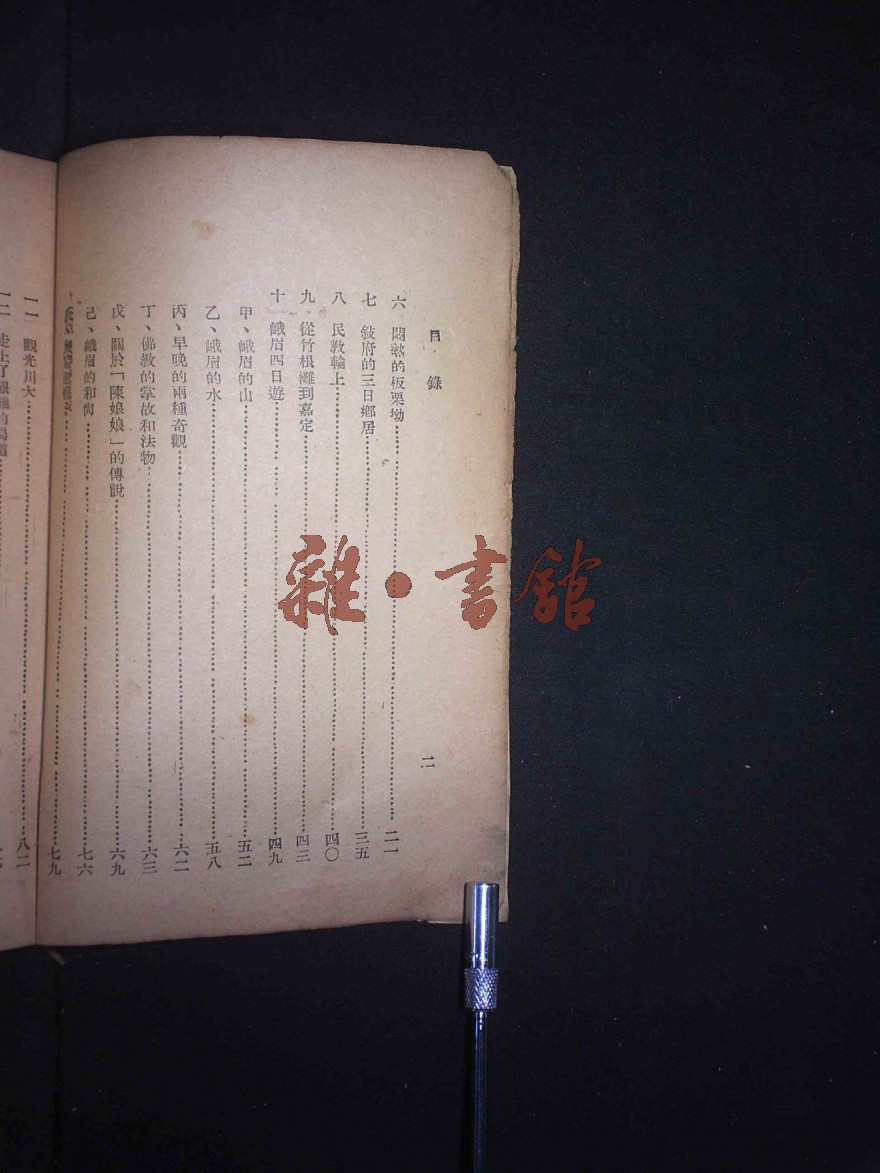 目錄
二
六 悶熱的板栗坳……二一
七 敍府的三日鄉居……三五
八 民敎輪上……四〇
九、從竹根灘到嘉定……四三
十 峨眉四日遊……四九
甲、峨眉的山……五二
乙、峨眉的水……五八
丙、早晚的兩種奇觀……六二
丁、佛敎的掌故和法物……六三
戊、關於「陳娘娘」的傳說……六九
己、峨眉的和尙……七六
七九
一一 觀光川大……八二
走上了
雜·書館